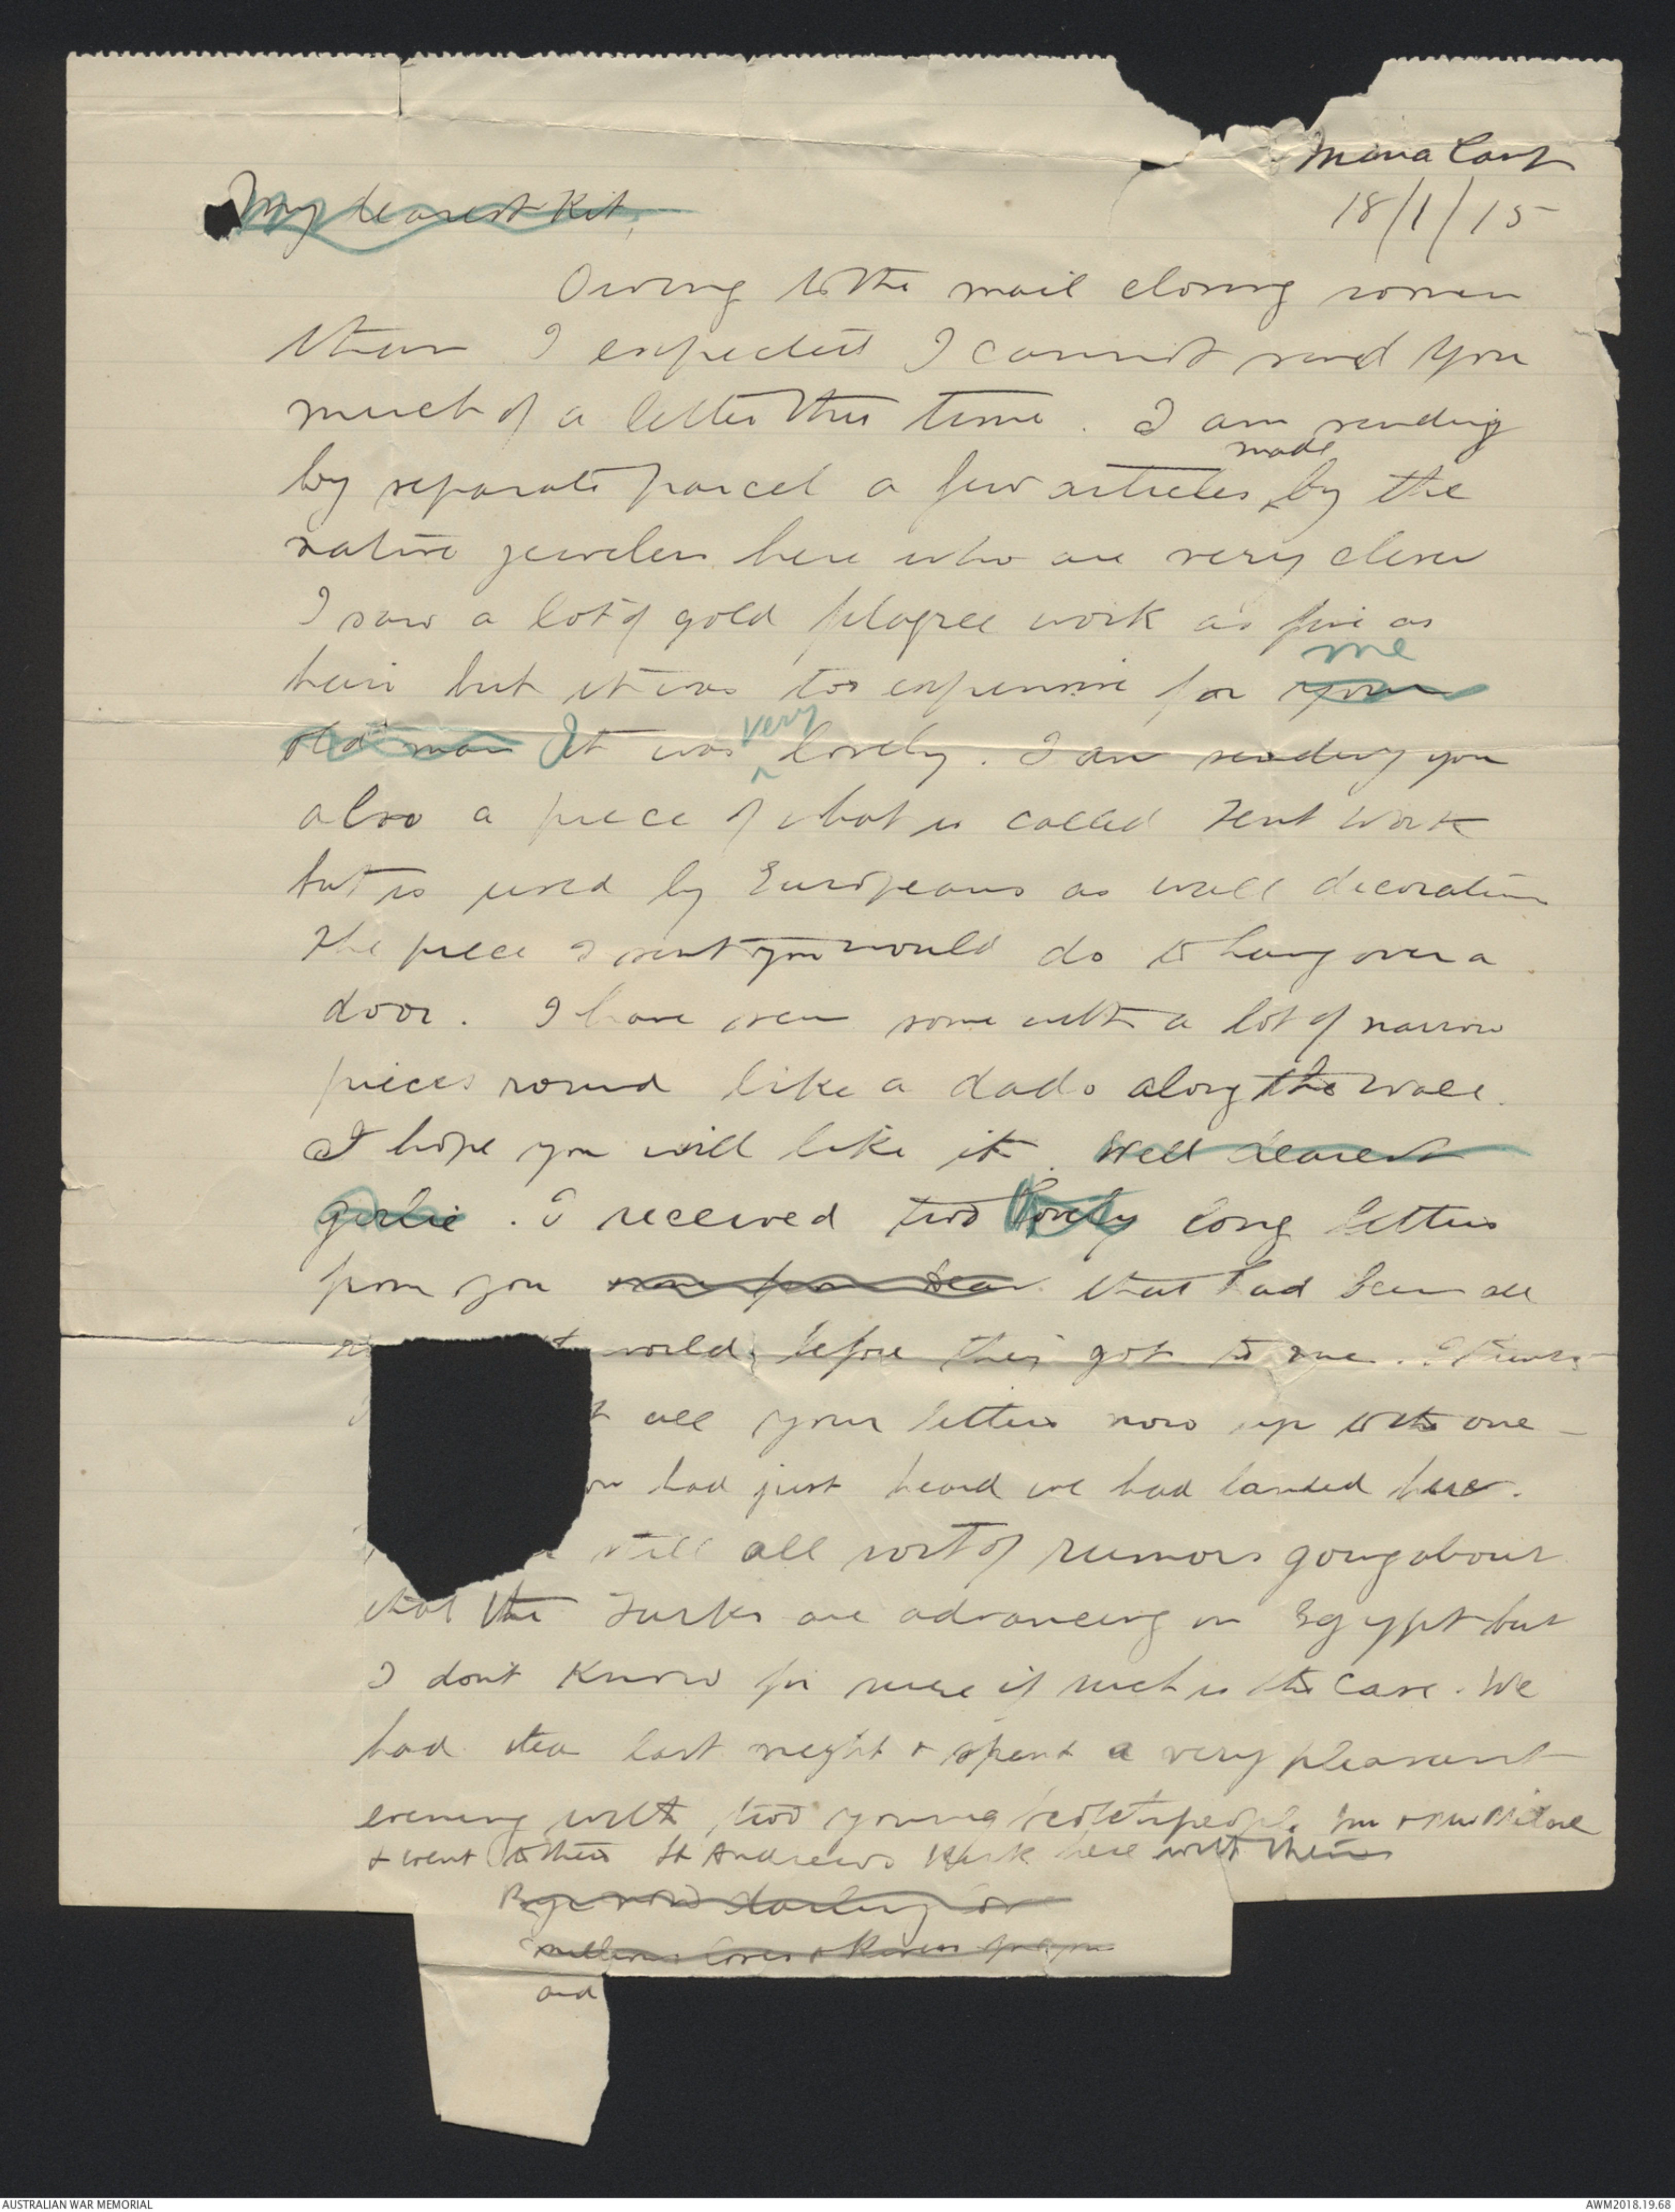 Mena Camp
18/1/15
My dearest Kit,
Owing to the mail closing sooner
than I expected I cannot send you
much of a letter this time. I am sending
by separate parcel a few articles made by the
native jewelers here who are very clever
I saw a lot of gold filagree work as fine as
hair but it was too expensive for your me
old man It was very lovely. I am sending you
also a piece of what is called Tent Work
but is used by Europeans as wall decoration
The piece I sent you would do to hang over a
door. I have seen some with a lot of narrow
pieces round like a dado along the wall.
I hope you will like it. Well dearest
girlie. I received two lovely long letters
from you from dear that had been all
world, before they got to me. I think
all your letters now up to the one
had just heard we had landed here.
still all sort of rumors going about
that the Turks are advancing on Egypt but
I dont know for sure if such is the case. We
had tea last night & spent a very pleasant
evening with two young Scotch people Mr & Mrs Milne
& went to the St Andrews Kirk here with them
Bye now darling
millions loves & kisses for you
and
AUSTRALIAN WAR MEMORIAL
AWM2018.19.68